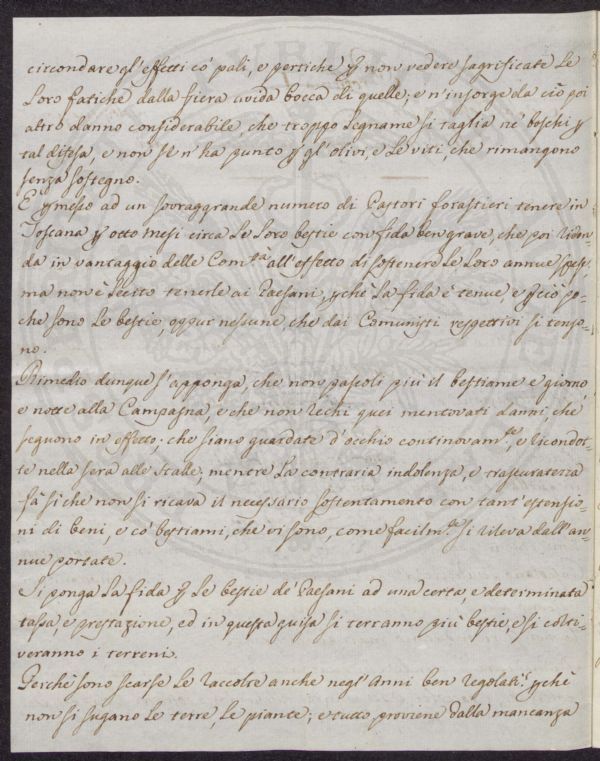 circondare gl'effetti co' pali, e pertiche p non vedere sagrificate Le
Loro fatiche dalla fiera avida bocca di quelle; e n'insorge da ciò poi
altro danno considerabile, che troppo Legname si taglia ne' boschi p
tal difesa, e non se n'ha punto p gl'olivi, e Le viti, che rimangono
senza sostegno.
E' pmesso ad un sovraggrande numero di Pastori forastieri tenere in
Toscana p otto mesi circa Le Loro bestie con fida ben grave, che poi ridon-
da in vantaggio delle Com.tà all'effetto di sostenere Le Loro annue spese,
ma non è Lecito tenerle ai Paesani, pchè La fida è tenue e pciò po-
che sono Le bestie, oppur nessune, che dai Comunisti respettivi si tengo-
no.
Rimedio dunque s'apponga, che non pascoli più il bestiame e giorno,
e notte alla Campagna, e che non rechi quei mentovati danni, che
seguono in effetto; che siano guardate d'occhio continovam.te, e ricondot-
te nella sera alle stalle; mentre La contraria indolenza, e trascuratezza
fà sì che non si ricava il necessario sostentamento con tant'estensio-
ni di beni, e co' bestiami, che vi sono, come facilm.te si rileva dall'an-
nue portate.
Si ponga La fida p Le bestie de' Paesani ad una certa, e determinata
tassa, e prestazione, ed in questa guisa si terranno più bestie, e si colti-
veranno i terreni.
Perchè sono scarse Le raccolte anche negl'Anni ben regolati? pchè
non si sugano Le terre, Le piante; e tutto proviene dalla mancanza